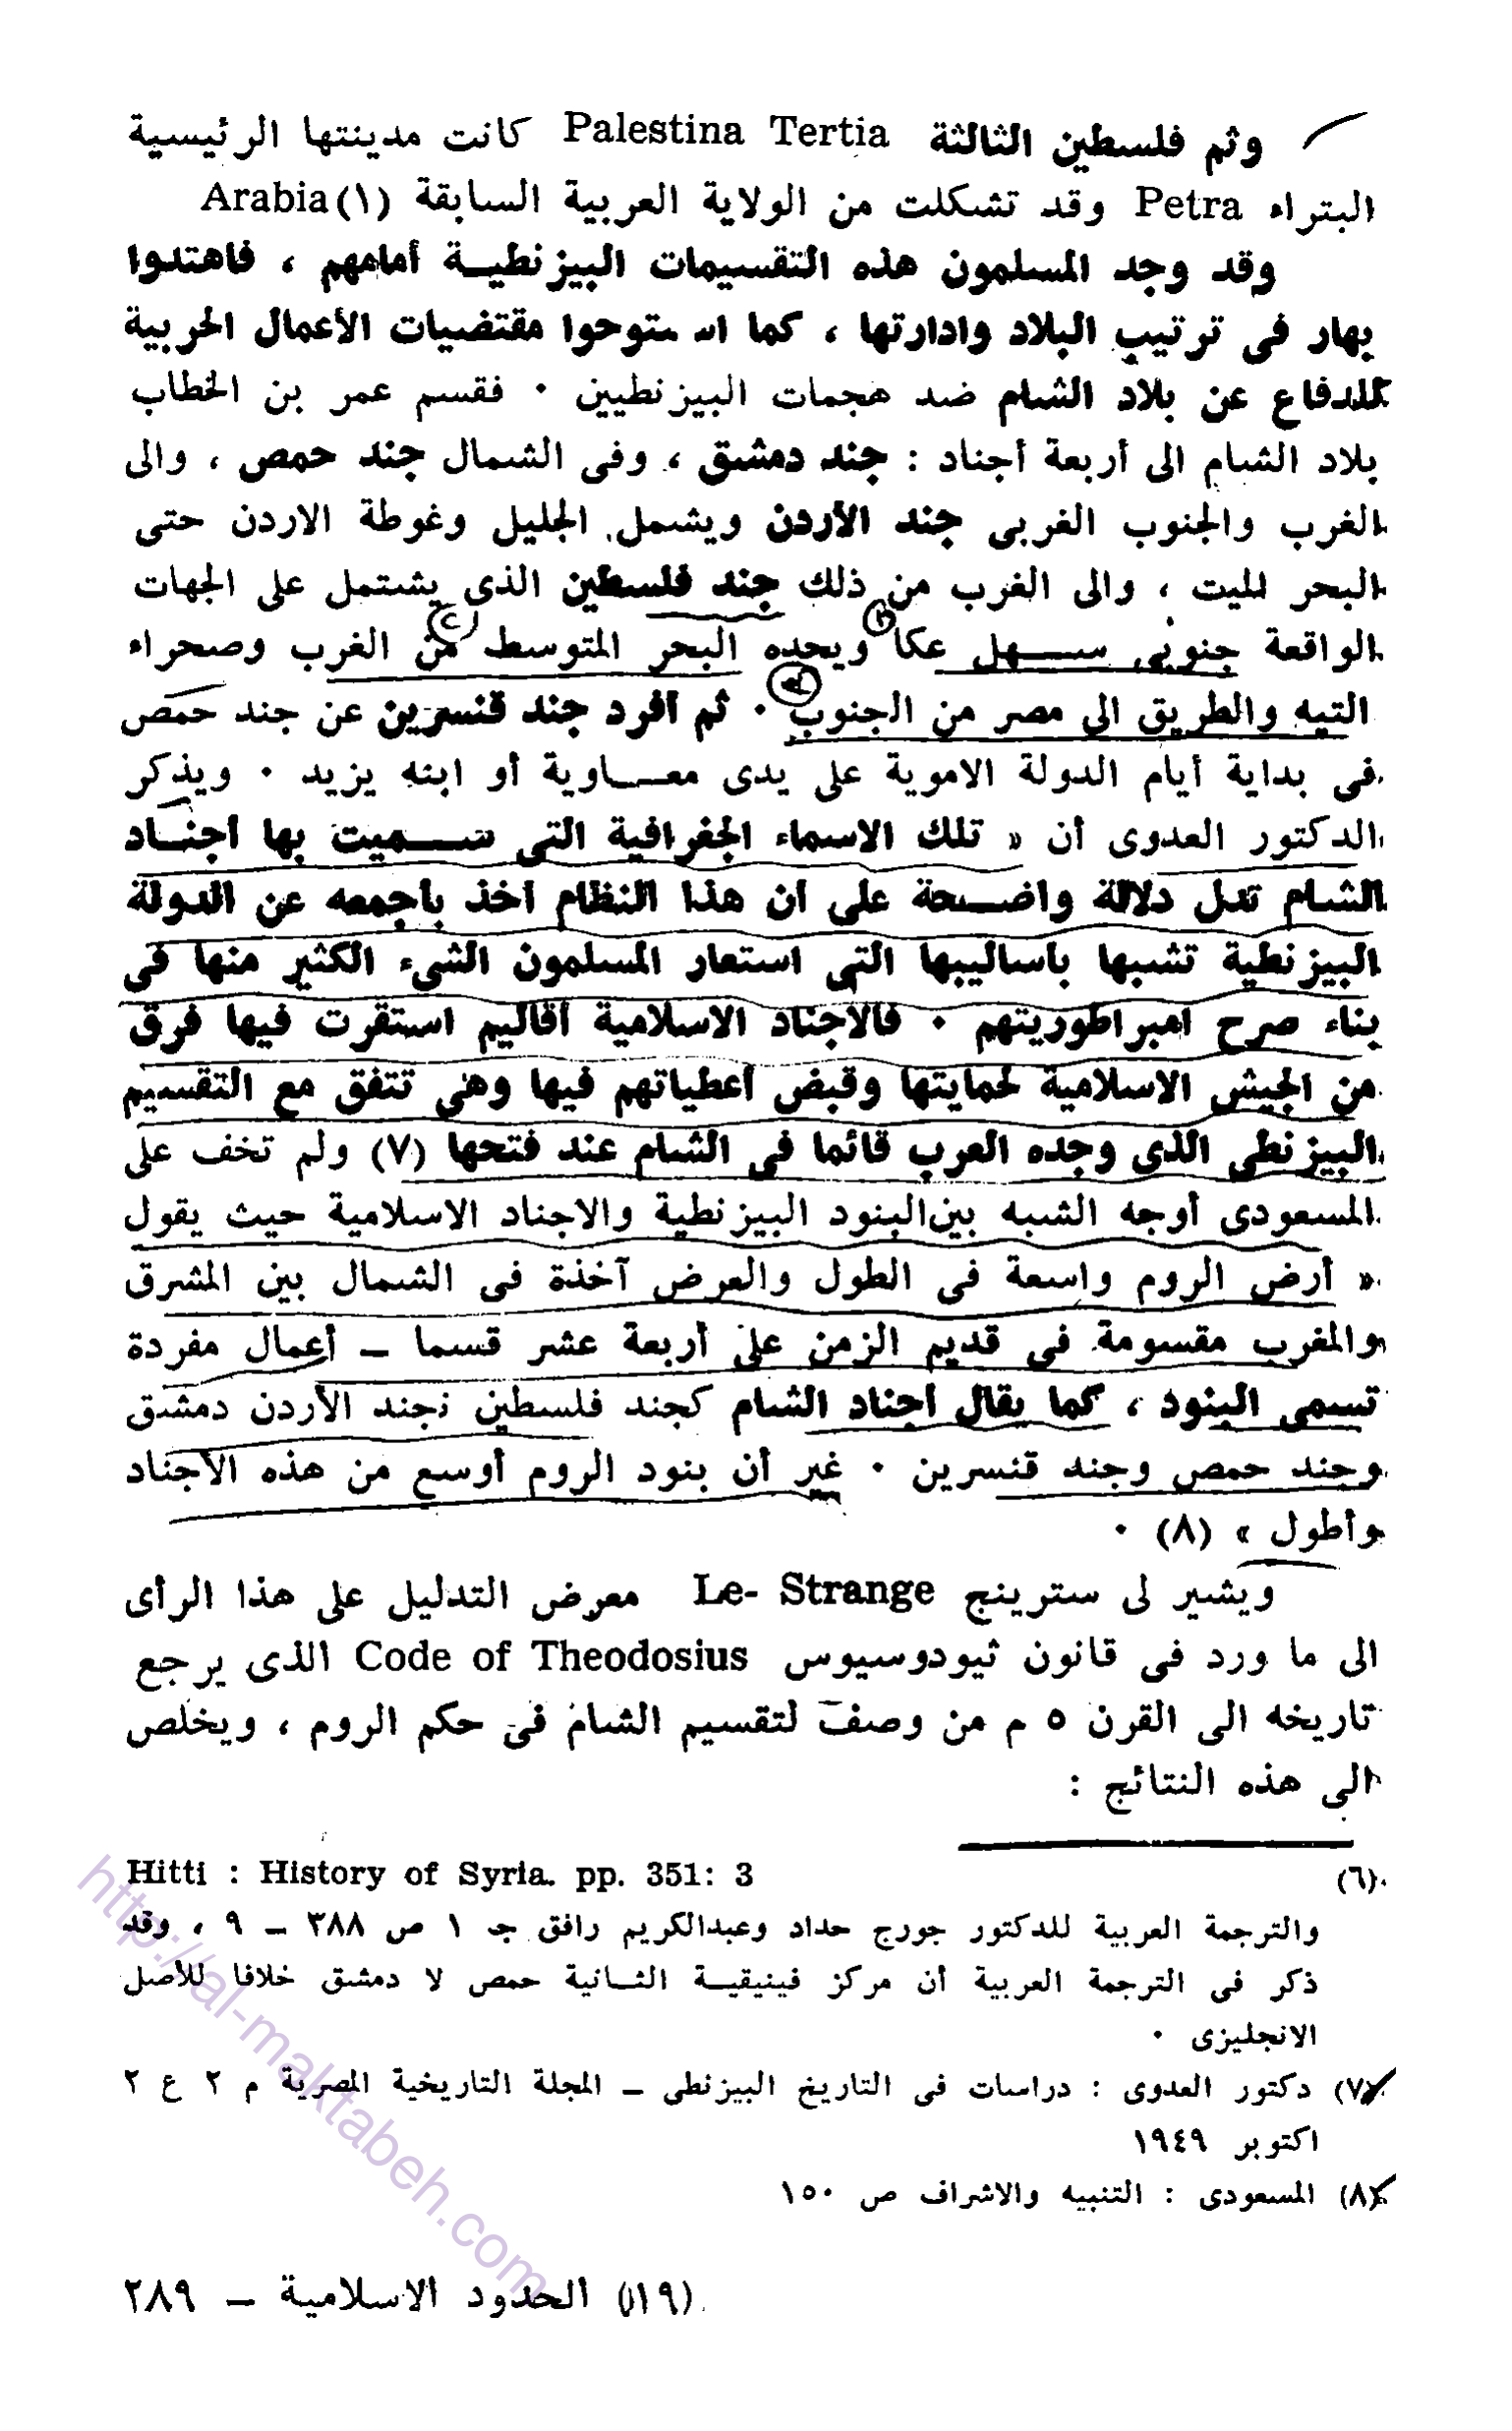 وثم فلسطين الثالثة Palestina Tertia كانت مدينتها الرئيسية
البتراء Petra وقد تشكلت من الولاية العربية السابقة Arabia(١)
وقد وجد المسلمون هذه التقسيمات البيزنطيـة أمامهم ، فاهتدوا
بهار فى ترتيب البلاد وادارتها ، كما استوحوا مقتضيات الأعمال الحربية
للدفاع عن بلاد الشام ضد هجمات البيزنطيين ٠ فقسم عمر بن الخطاب
بلاد الشام الى أربعة أجناد : جند دمشق ، وفى الشمال جند حمص ، والى
الغرب والجنوب الغربى جند الأردن ويشمل الجليل وغوطة الاردن حتى
البحر الميت ، والى الغرب من ذلك جند فلسطين الذى يشتمل على الجهات
الواقعة جنوبى سـهل عكا ويحده البحر المتوسط من الغرب وصحراء
التيه والطريق الى مصر من الجنوب ٠ ثم أفرد جند قنسرين عن جند حمص
فى بداية أيام الدولة الاموية على يدى معـاوية أو ابنه يزيد ٠ ويذكر
الدكتور العدوى أن « تلك الاسماء الجغرافية التى سـميت بها أجنـاد
الشام تدل دلالة واضـحة على أن هذا النظام أخذ بأجمعه عن الدولة
البيزنطية تشبها بأساليبها التى استعار المسلمون الشىء الكثير منها فى
بناء صرح امبراطوريتهم ٠ فالأجناد الاسلامية أقاليم استقرت فيها فرق
من الجيش الاسلامية لحمايتها وقبض أعطياتهم فيها وهى تتفق مع التقسيم
البيزنطى الذى وجده العرب قائما فى الشام عند فتحها (٧) ولم تخف على
المسعودى أوجه الشبه بين البنود البيزنطية والاجناد الاسلامية حيث يقول
« أرض الروم واسعة فى الطول والعرض آخذة فى الشمال بين المشرق
والمغرب مقسومة فى قديم الزمن على أربعة عشر قسما ـ أعمال مفردة
تسمى البنود ، كما يقال أجناد الشام كجند فلسطين نجند الأردن دمشق
وجند حمص وجند قنسرين ٠ غير أن بنود الروم أوسع من هذه الأجناد
وأطول » (٨) ٠
ويشير لى سترينج Le- Strange معرض التدليل على هذا الرأى
الى ما ورد فى قانون ثيودوسيوس Code of Theodosius الذى يرجع
تاريخه الى القرن ٥ م من وصف لتقسيم الشام فى حكم الروم ، ويخلص
الى هذه النتائج :
(٦) Hitti : History of Syria. pp. 351: 3
والترجمة العربية للدكتور جورج حداد وعبدالكريم رافق جـ ١ ص ٣٨٨ ـ ٩ ، وقد
ذكر فى الترجمة العربية أن مركز فينيقيـة الثـانية حمص لا دمشق خلافا للأصل
الانجليزى ٠
(٧) دكتور العدوى : دراسات فى التاريخ البيزنطى ـ المجلة التاريخية المصرية م ٢ ع ٢
اكتوبر ١٩٤٩
(٨) المسعودى : التنبيه والاشراف ص ١٥٠
(١٩) الحدود الاسلامية ـ ٢٨٩
http://al-maktabeh.com